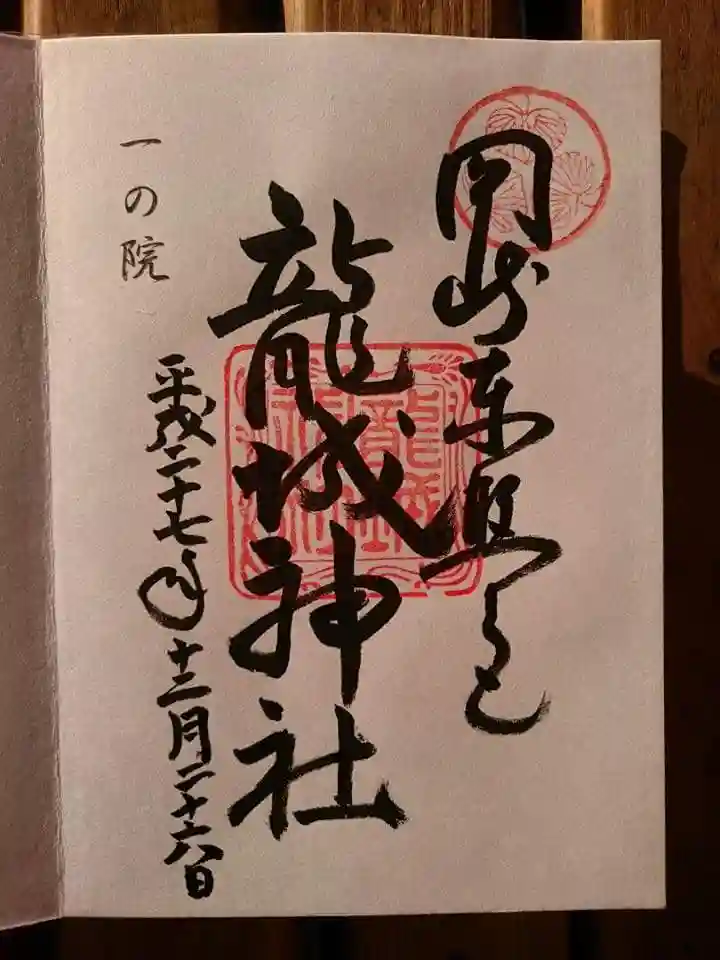 岡崎東照宮
龍城神社
平成二十七年十二月二十六日
一の院